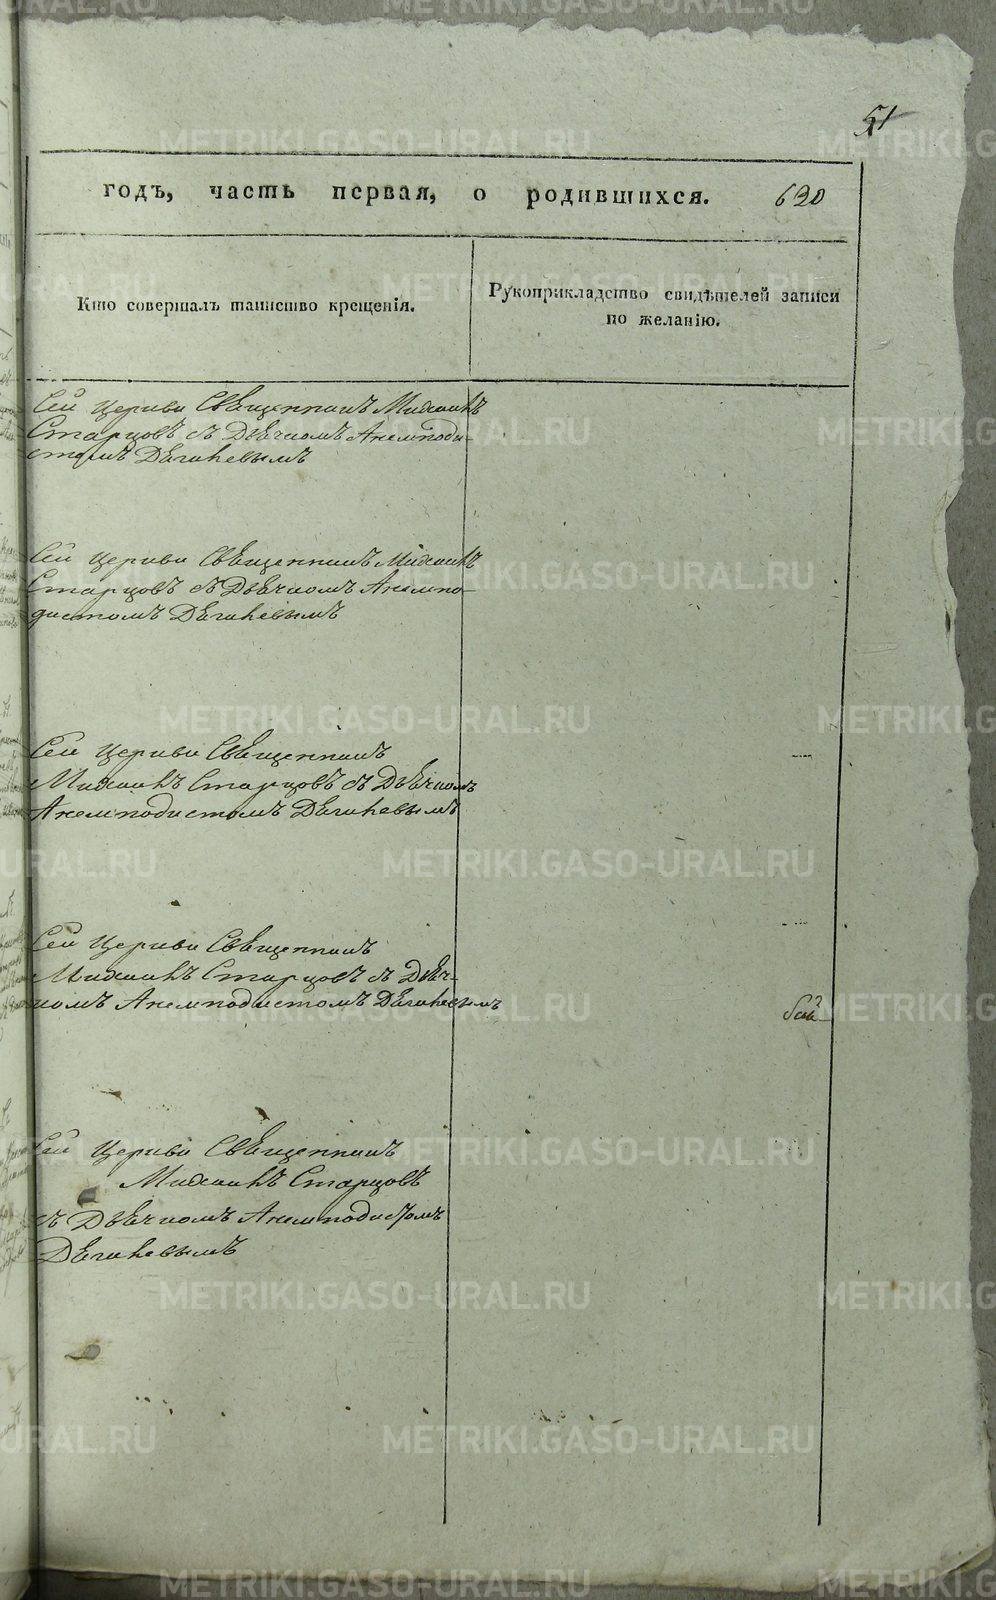 51
годъ, часть первая, о родившихся. 620
Кто совершалъ таинство крещенія.
Рукоприкладство свидѣтелей записи
по желанію.
Сей Церкви Священникъ Михаилъ
Старцовъ съ Дьячкомъ Анемподи-
стомъ Дягилевымъ
Сей Церкви Священникъ Михаилъ
Старцовъ съ Дьячкомъ Анемпо-
дистомъ Дягилевымъ
Сей Церкви Священникъ
Михаилъ Старцовъ съ Дьячкомъ
Анемподистомъ Дягилевымъ
Сей Церкви Священникъ
Михаилъ Старцовъ съ Дьяч-
комъ Анемподистомъ Дягилевымъ
Сей Церкви Священникъ
Михаилъ Старцовъ
съ Дьячкомъ Анемподистомъ
Дягилевымъ
METRIKI.GASO-URAL.RU